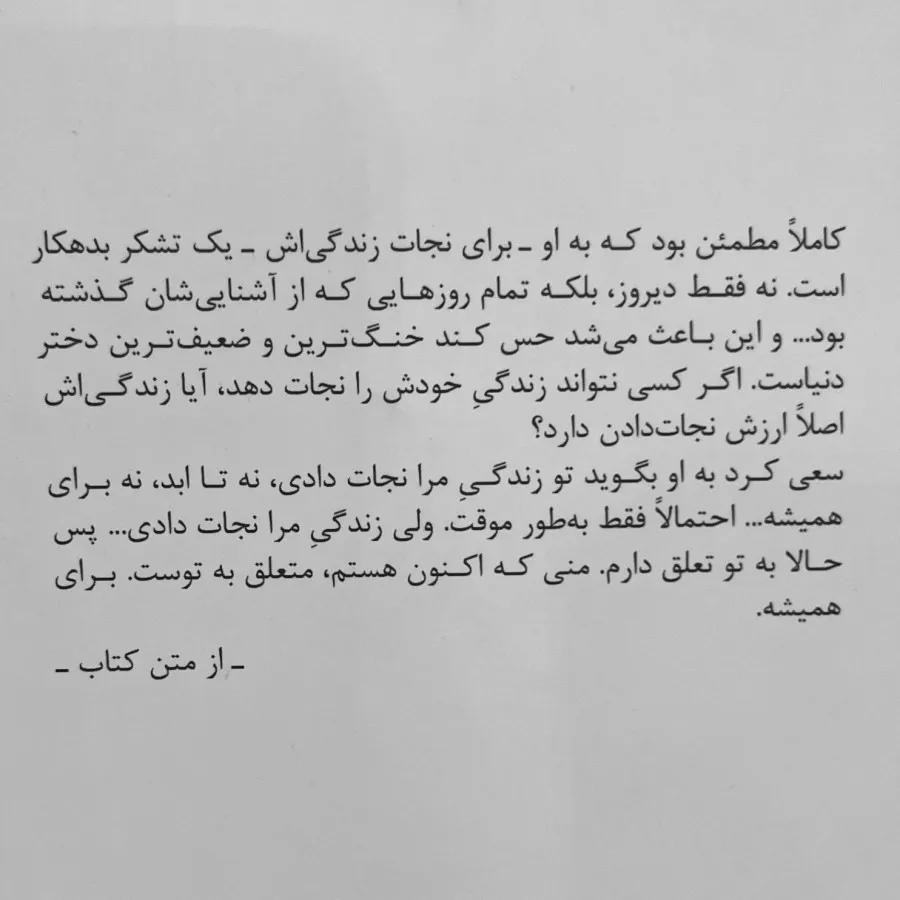 کاملاً مطمئن بود که به او ـ برای نجات زندگی‌اش ـ یک تشکر بدهکار
است. نه فقط دیروز، بلکه تمام روزهایی که از آشنایی‌شان گذشته
بود... و این باعث می‌شد حس کند خنگ‌ترین و ضعیف‌ترین دختر
دنیاست. اگر کسی نتواند زندگیِ خودش را نجات دهد، آیا زندگی‌اش
اصلاً ارزش نجات‌دادن دارد؟
سعی کرد به او بگوید تو زندگیِ مرا نجات دادی، نه تا ابد، نه برای
همیشه... احتمالاً فقط به‌طور موقت. ولی زندگیِ مرا نجات دادی... پس
حالا به تو تعلق دارم. منی که اکنون هستم، متعلق به توست. برای
همیشه.
ـ از متن کتاب ـ